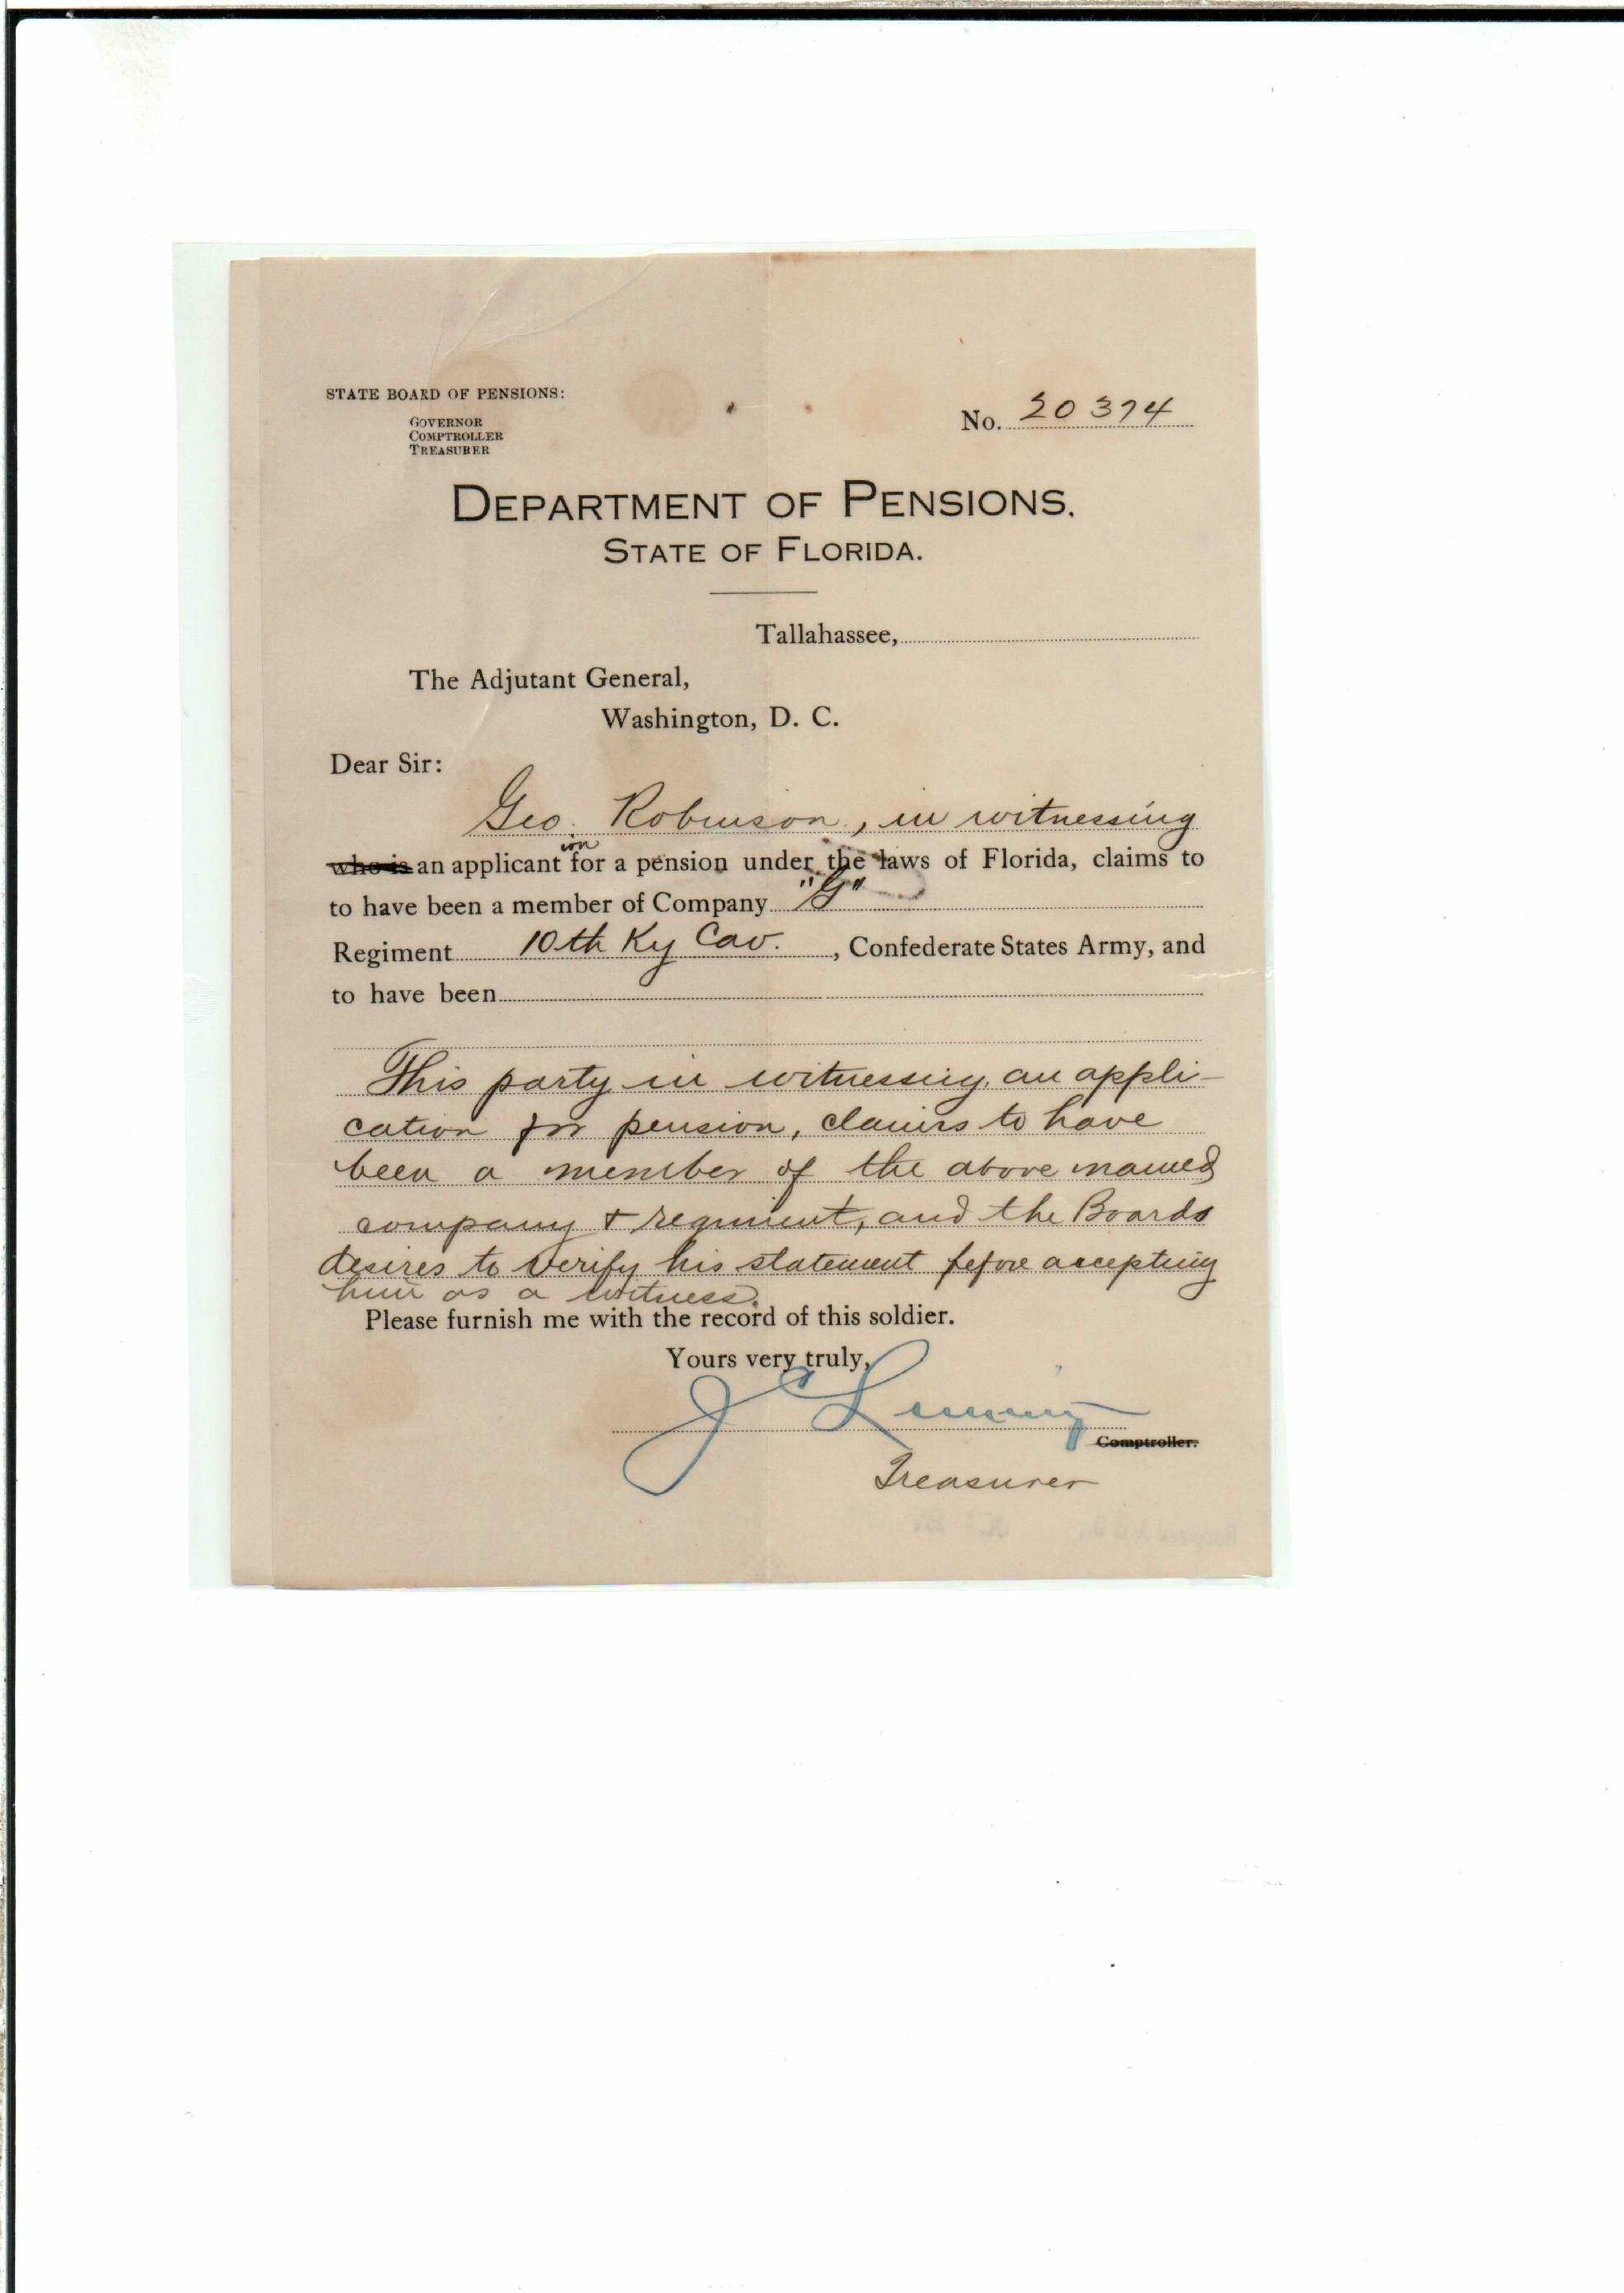 STATE BOARD OF PENSIONS:
GOVERNOR
COMPTROLLER
TREASURER
No. 20374
DEPARTMENT OF PENSIONS.
STATE OF FLORIDA.
Tallahassee,
The Adjutant General,
Washington, D. C.
Dear Sir:
Geo. Robinson, in witnessing
ion
who is an applicant for a pension under the laws of Florida, claims to
to have been a member of Company "G"
Regiment 10th Ky Cav. , Confederate States Army, and
to have been
This party in witnessing, an appli-
cation for pension, claims to have
been a member of the above named
company + regiment, and the Boards
desires to verify his statement before accepting
him as a witness.
Please furnish me with the record of this soldier.
Yours very truly,
J C Luning
Comptroller.
Treasurer